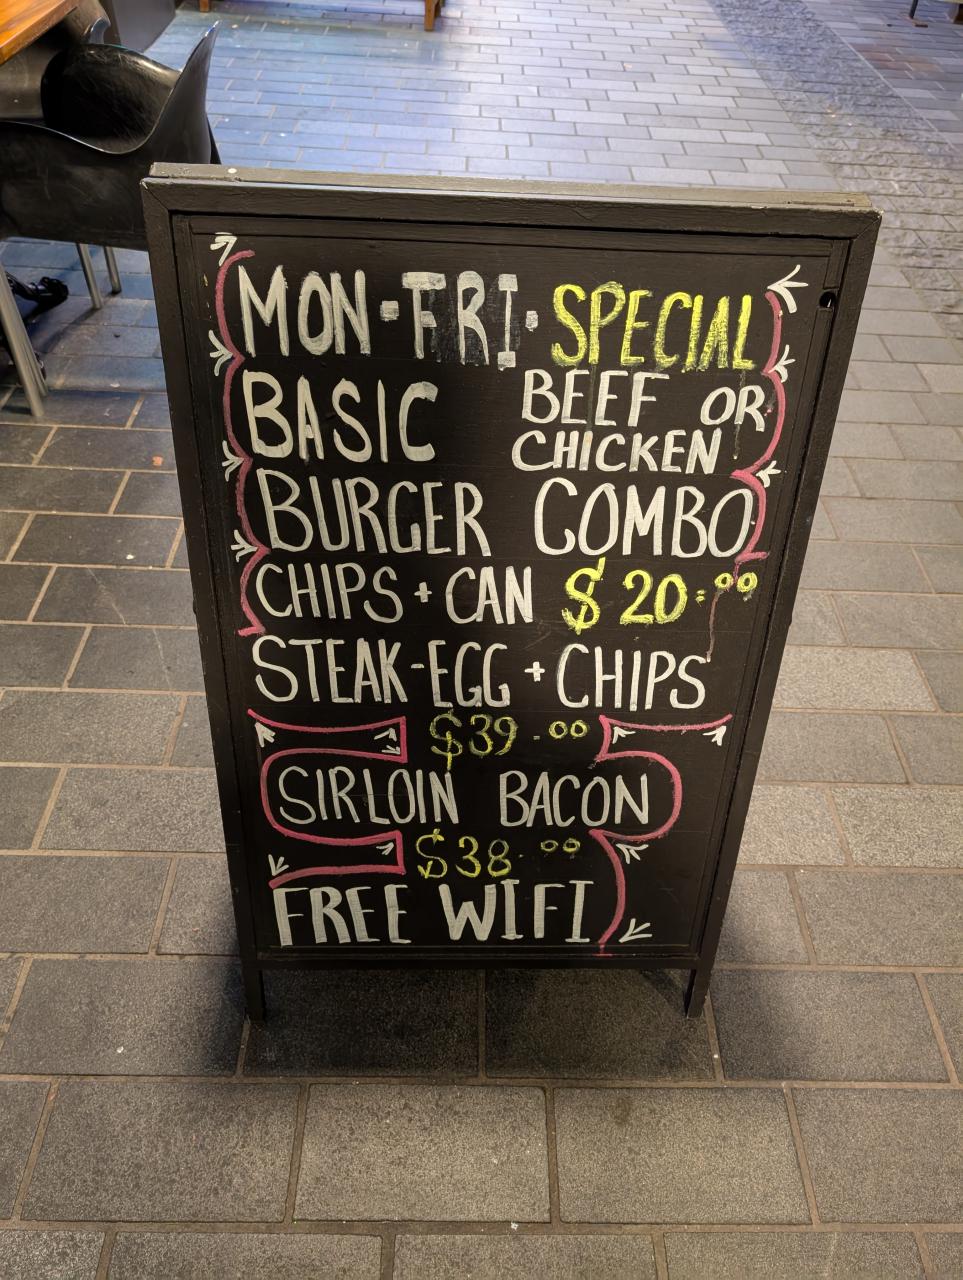 MON-FRI. SPECIAL
BASIC BEEF OR
CHICKEN
BURGER COMBO
CHIPS + CAN $20.00
STEAK-EGG + CHIPS
$39.00
SIRLOIN BACON
$38.00
FREE WIFI